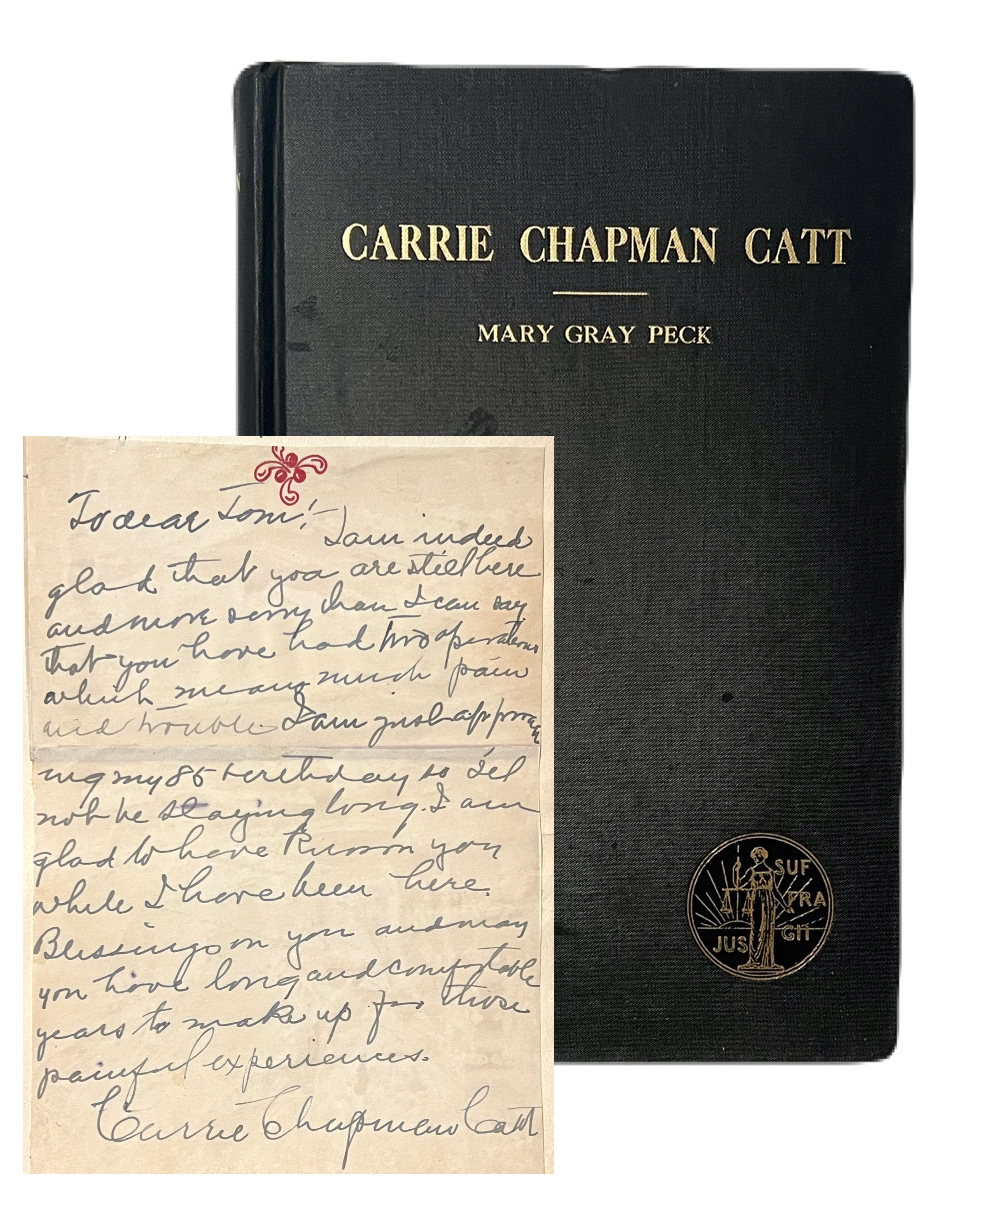 CARRIE CHAPMAN CATT
MARY GRAY PECK
SUF
FRA
JUS
GII
To dear Tom!-
I am indeed
glad that you are still here
and more sorry than I can say
that you have had two operations
which means much pain
and trouble. I am just approach
ing my 85 birthday so I'll
not be staying long. I am
glad to have known you
while I have been here.
Blessings on you and may
you have long and comfortable
years to make up for those
painful experiences.
Carrie Chapman Catt